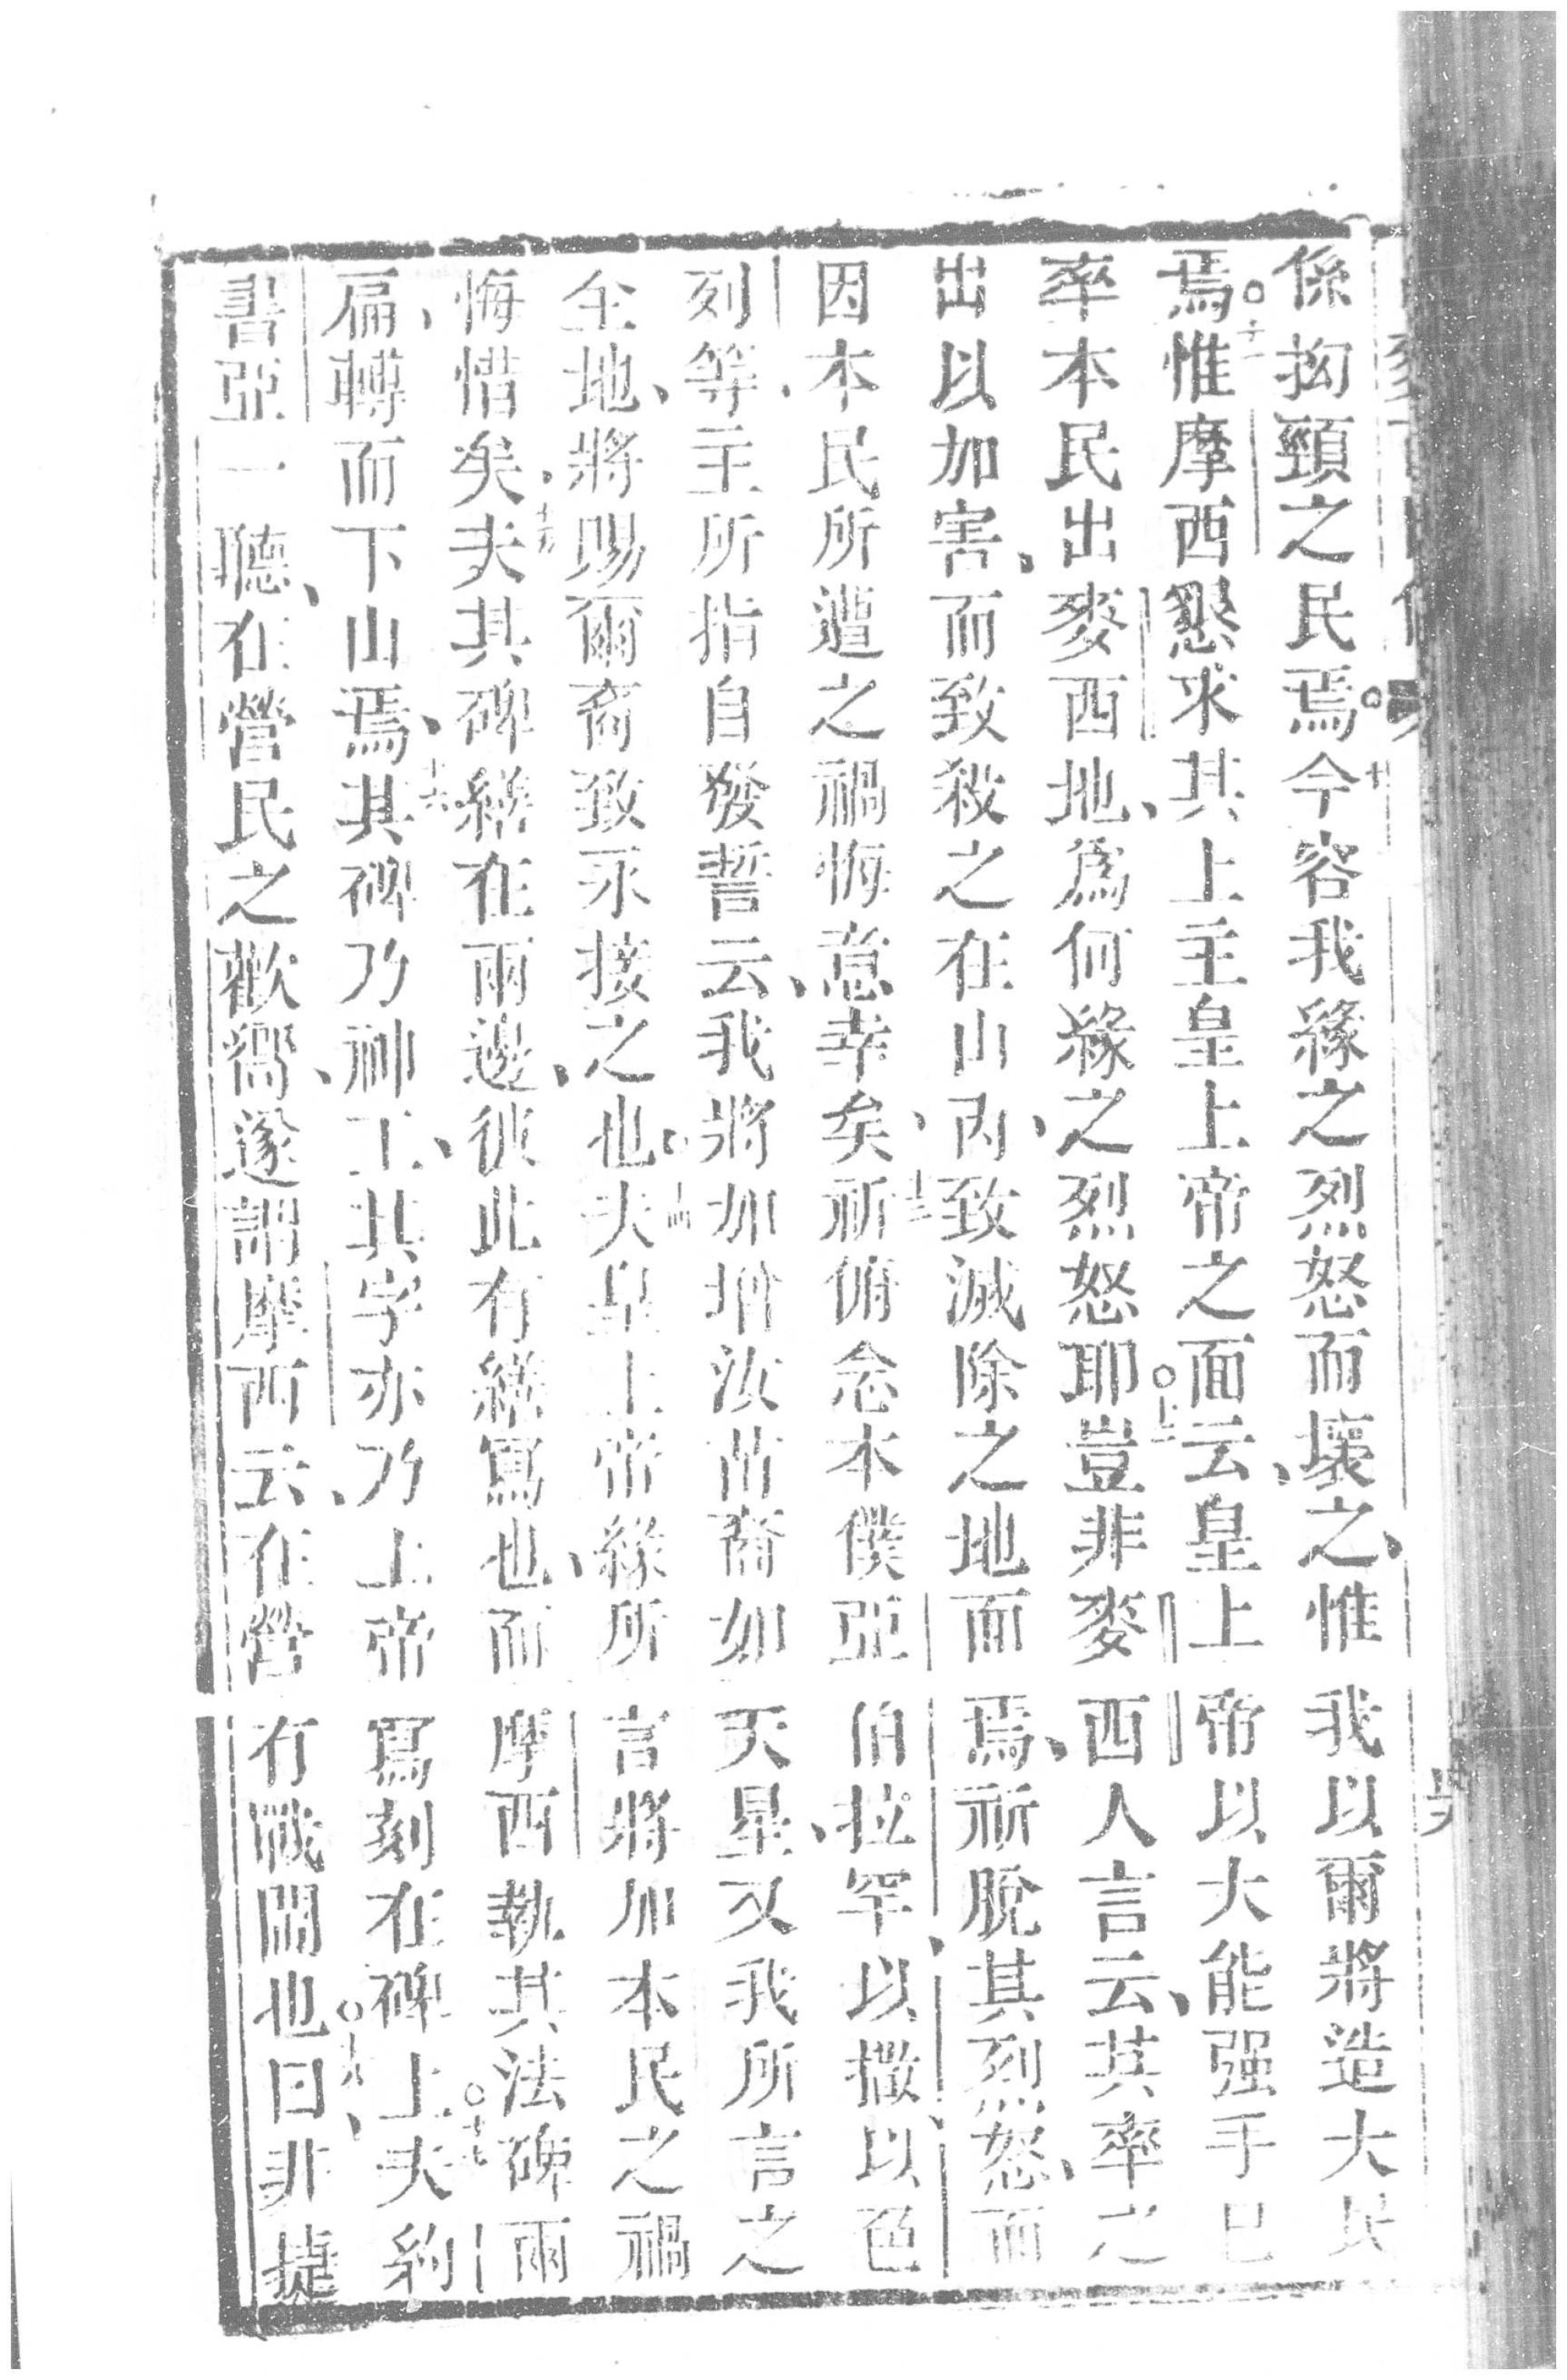 係拗頸之民焉○十今容我緣之烈怒而壞之、惟我以爾將造大民
焉○十一惟摩西懇求其上主皇上帝之面云、皇上帝以大能强手已
率本民出麥西地、爲何緣之烈怒耶○十二豈非麥西人言云、其率之
出以加害、而致殺之在山內、致滅除之地面焉、祈脫其烈怒、而
因本民所遭之禍悔意幸矣、十三祈俯念本僕亞伯拉罕、以撒、以色
列等、主所指自發誓云、我將加增汝苗裔如天星、又我所言之
全地、將賜爾裔致永接之也○十四夫皇上帝緣所言將加本民之禍
悔惜矣○十五夫其碑繕在兩邊、彼此有繕寫也、而摩西執其法碑兩
扁、轉而下山焉、十六其碑乃神工、其字亦乃上帝寫刻在碑上○十七夫約
書亞一聽、在營民之歡嚮、遂謂摩西云、在營有戰鬪也○十八曰、非捷